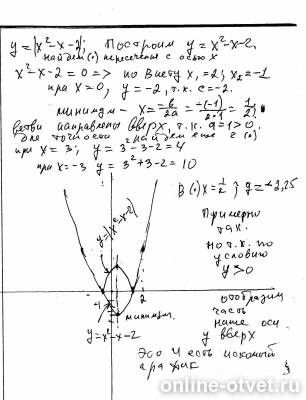 y = |x²-x-2|; Построим y = x²-x-2
найдём (.) пересечения с осью X
x²-x-2=0 => по Виету x₁=2; x₂=-1
при x=0, y=-2, т.к. c=-2.
минимум - x = -b/2a = -(-1)/2·1 = 1/2;
ветви направлены вверх, т.к. a=1>0.
для точности найдём ещё 2 (.)
при x=3; y=3²-3-2=4
при x=-3 y=3²+3-2=10
В (.) x=1/2; y=-2,25
y=|x²-x-2|
Примерно
так.
но т.к. по
условию
y>0
отобразим
часть
ниже оси
y вверх
-1
2
минимум
y=x²-x-2
Это и есть искомый
график
online-otvet.ru